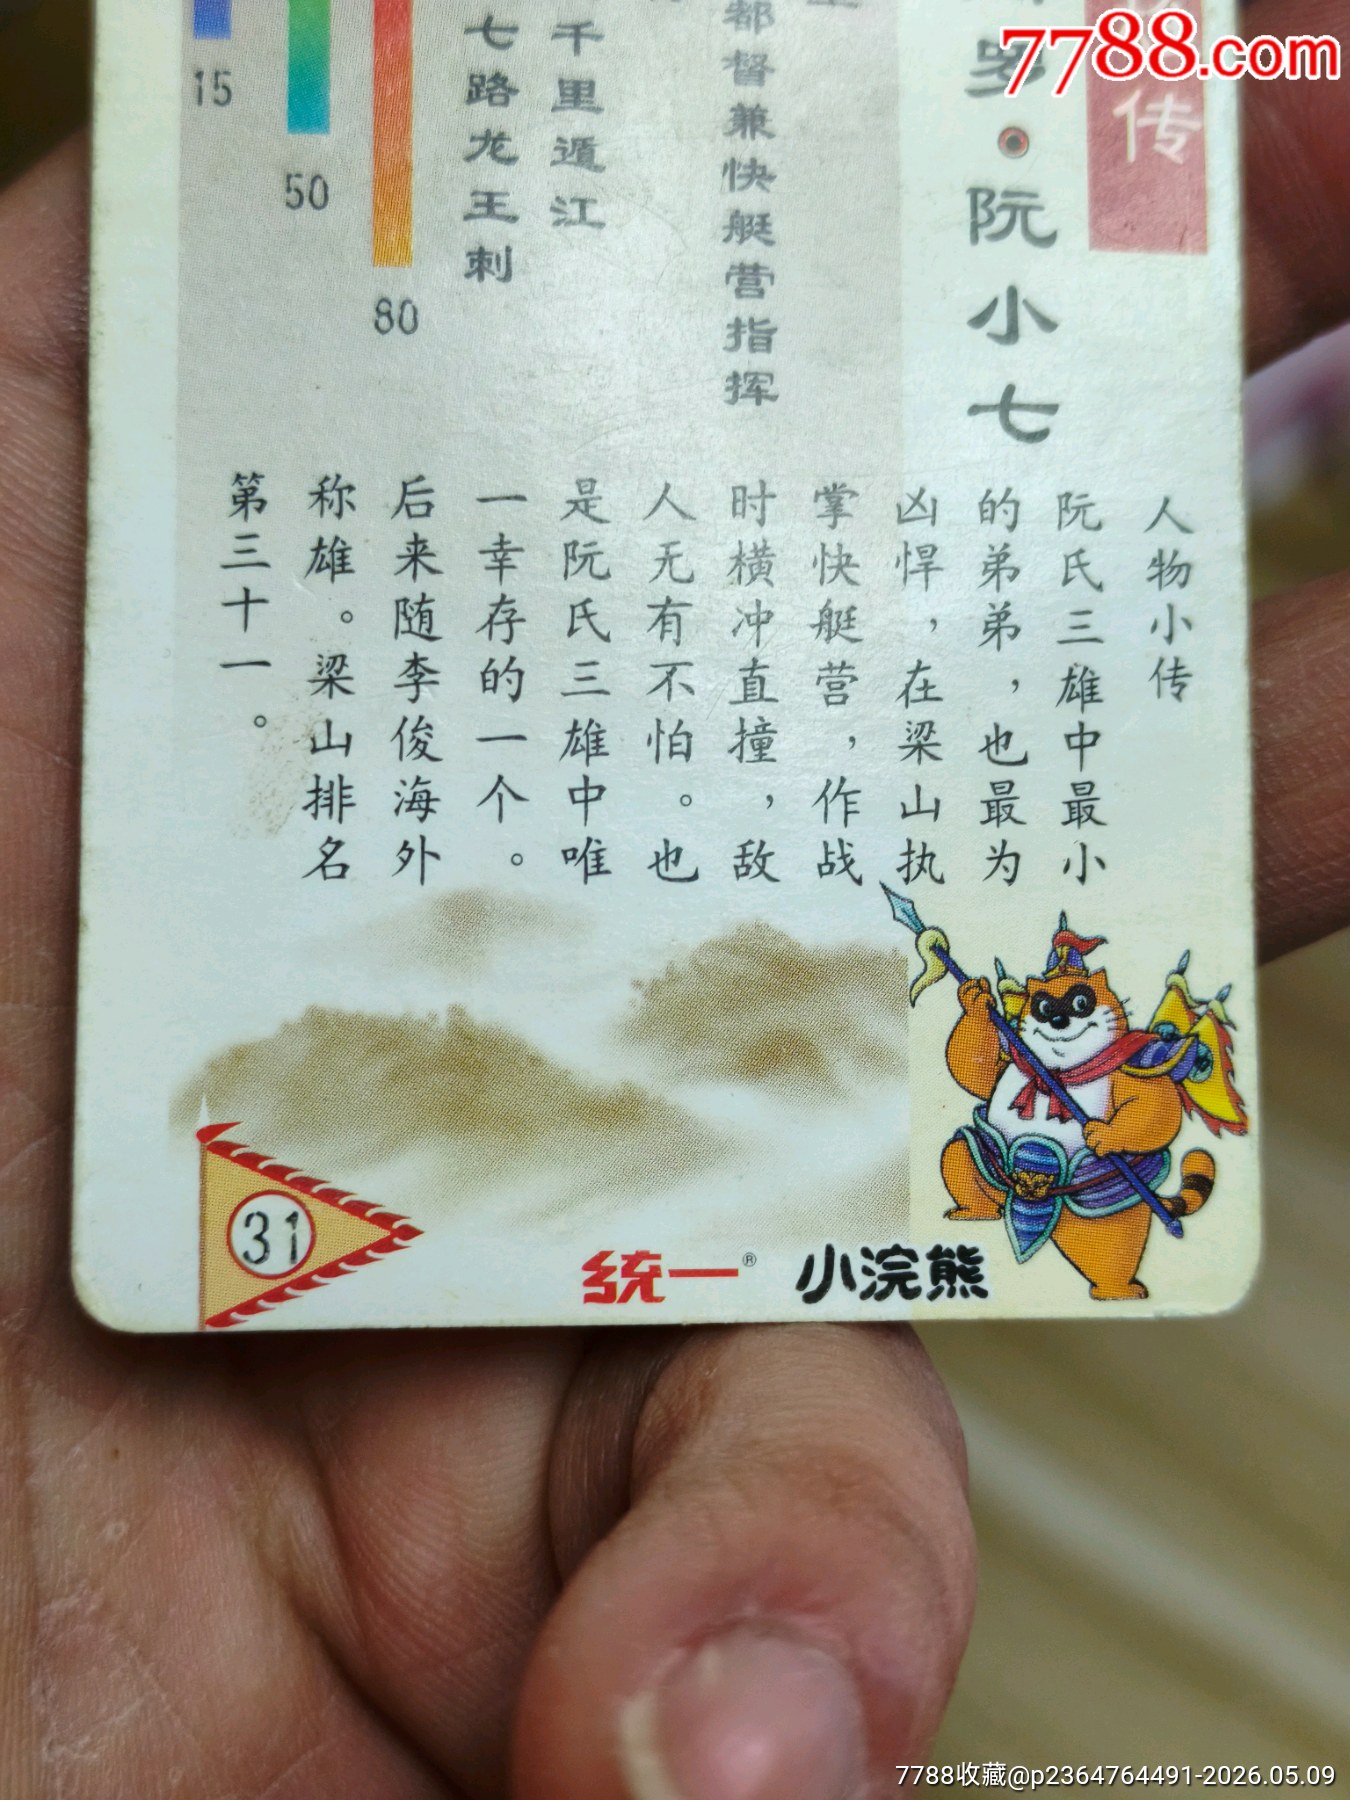 7788.com
传
罗·阮小七
都督兼快艇营指挥
千里遁江
七路龙王刺
15
50
80
人物小传
阮氏三雄中最小
的弟弟，也最为
凶悍，在梁山执
掌快艇营，作战
时横冲直撞，敌
人无有不怕。也
是阮氏三雄中唯
一幸存的一个。
后来随李俊海外
称雄。梁山排名
第三十一。
31
统一®
小浣熊
7788收藏@p2364764491-2026.05.09